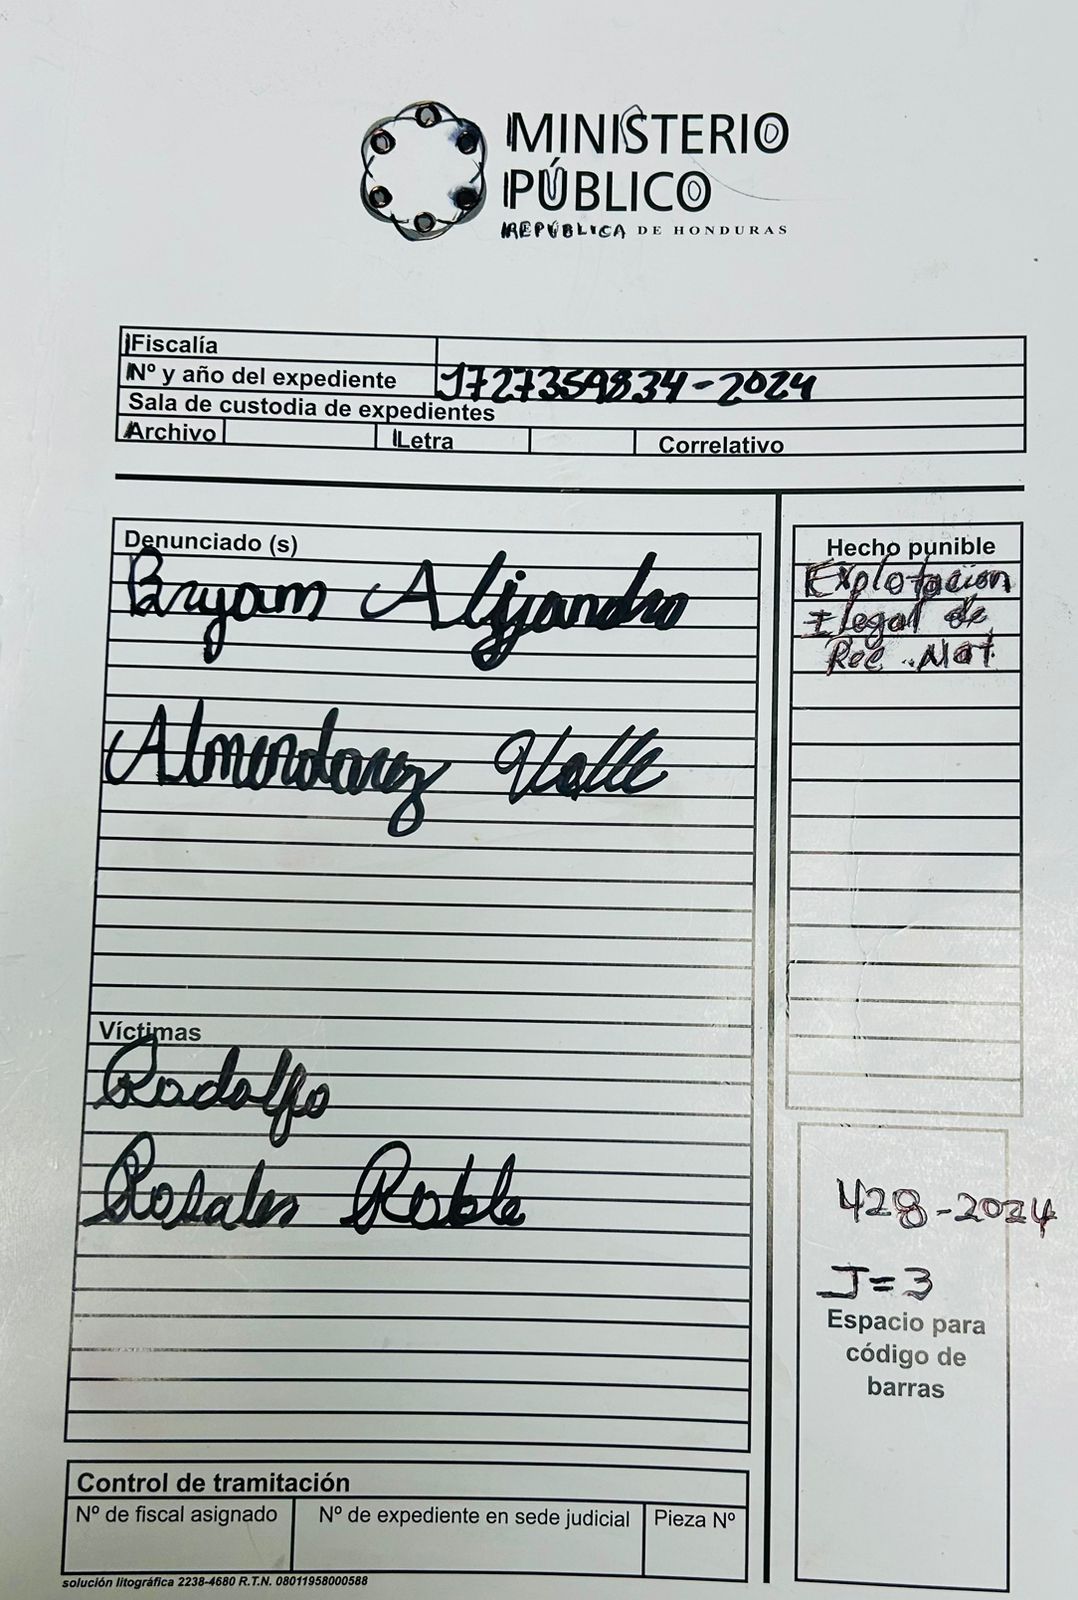 MINISTERIO
PÚBLICO
REPÚBLICA DE HONDURAS
Fiscalía
Nº y año del expediente 1727359834-2024
Sala de custodia de expedientes
Archivo Letra Correlativo
Denunciado (s)
Bryam Alejandro
Almendarez Valle
Hecho punible
Explotacion
Ilegal de
Rec. Nat.
Víctimas
Rodolfo
Rosales Roble
428-2024
J=3
Espacio para
código de
barras
Control de tramitación
Nº de fiscal asignado Nº de expediente en sede judicial Pieza Nº
solución litográfica 2238-4680 R.T.N. 08011958000588